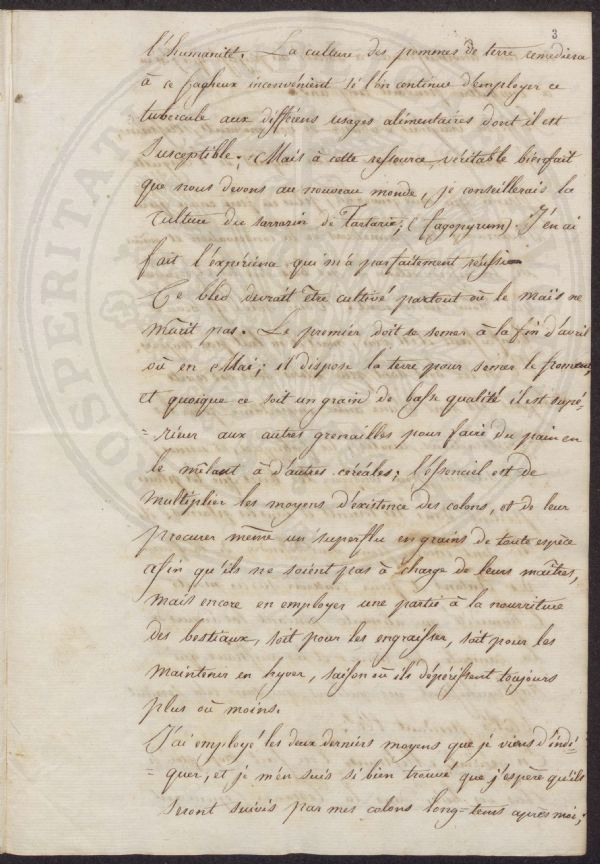 3
l'humanité. La culture des pommes de terre remediera
à ce facheux inconvénient si l'on continue d'employer ce
tubercule aux différens usages alimentaires dont il est
susceptible; Mais à cette ressource, veritable bienfait
que nous devons au nouveau monde, je conseillerais la
culture du sarrazin de Tartarie; (fagopyrum). J'en ai
fait l'expérience qui m'a parfaitement réussi
Ce bled devrait être cultivé partout où le maïs ne
mûrit pas. Le premier doit se semer à la fin d'avril
ou en Mai; il dispose la terre pour semer le froment,
et quoique ce soit un grain de basse qualité il est supé-
=rieur aux autres grenailles pour faire du pain en
le mêlant à d'autres céréales; l'essenciel est de
multiplier les moyens d'existence des colons, et de leur
procurer même un superflu en grains de toute espèce
afin qu'ils ne soient pas à charge de leurs maîtres,
mais encore en employer une partie à la nourriture
des bestiaux, soit pour les engraisser, soit pour les
maintenir en hyver, saison où ils dépérissent toujours
plus ou moins.
J'ai employé les deux derniers moyens que je viens d'indi-
=quer, et je m'en suis si bien trouvé que j'espère qu'ils
seront suivis par mes colons long-tems après moi;
PROSPERITAT